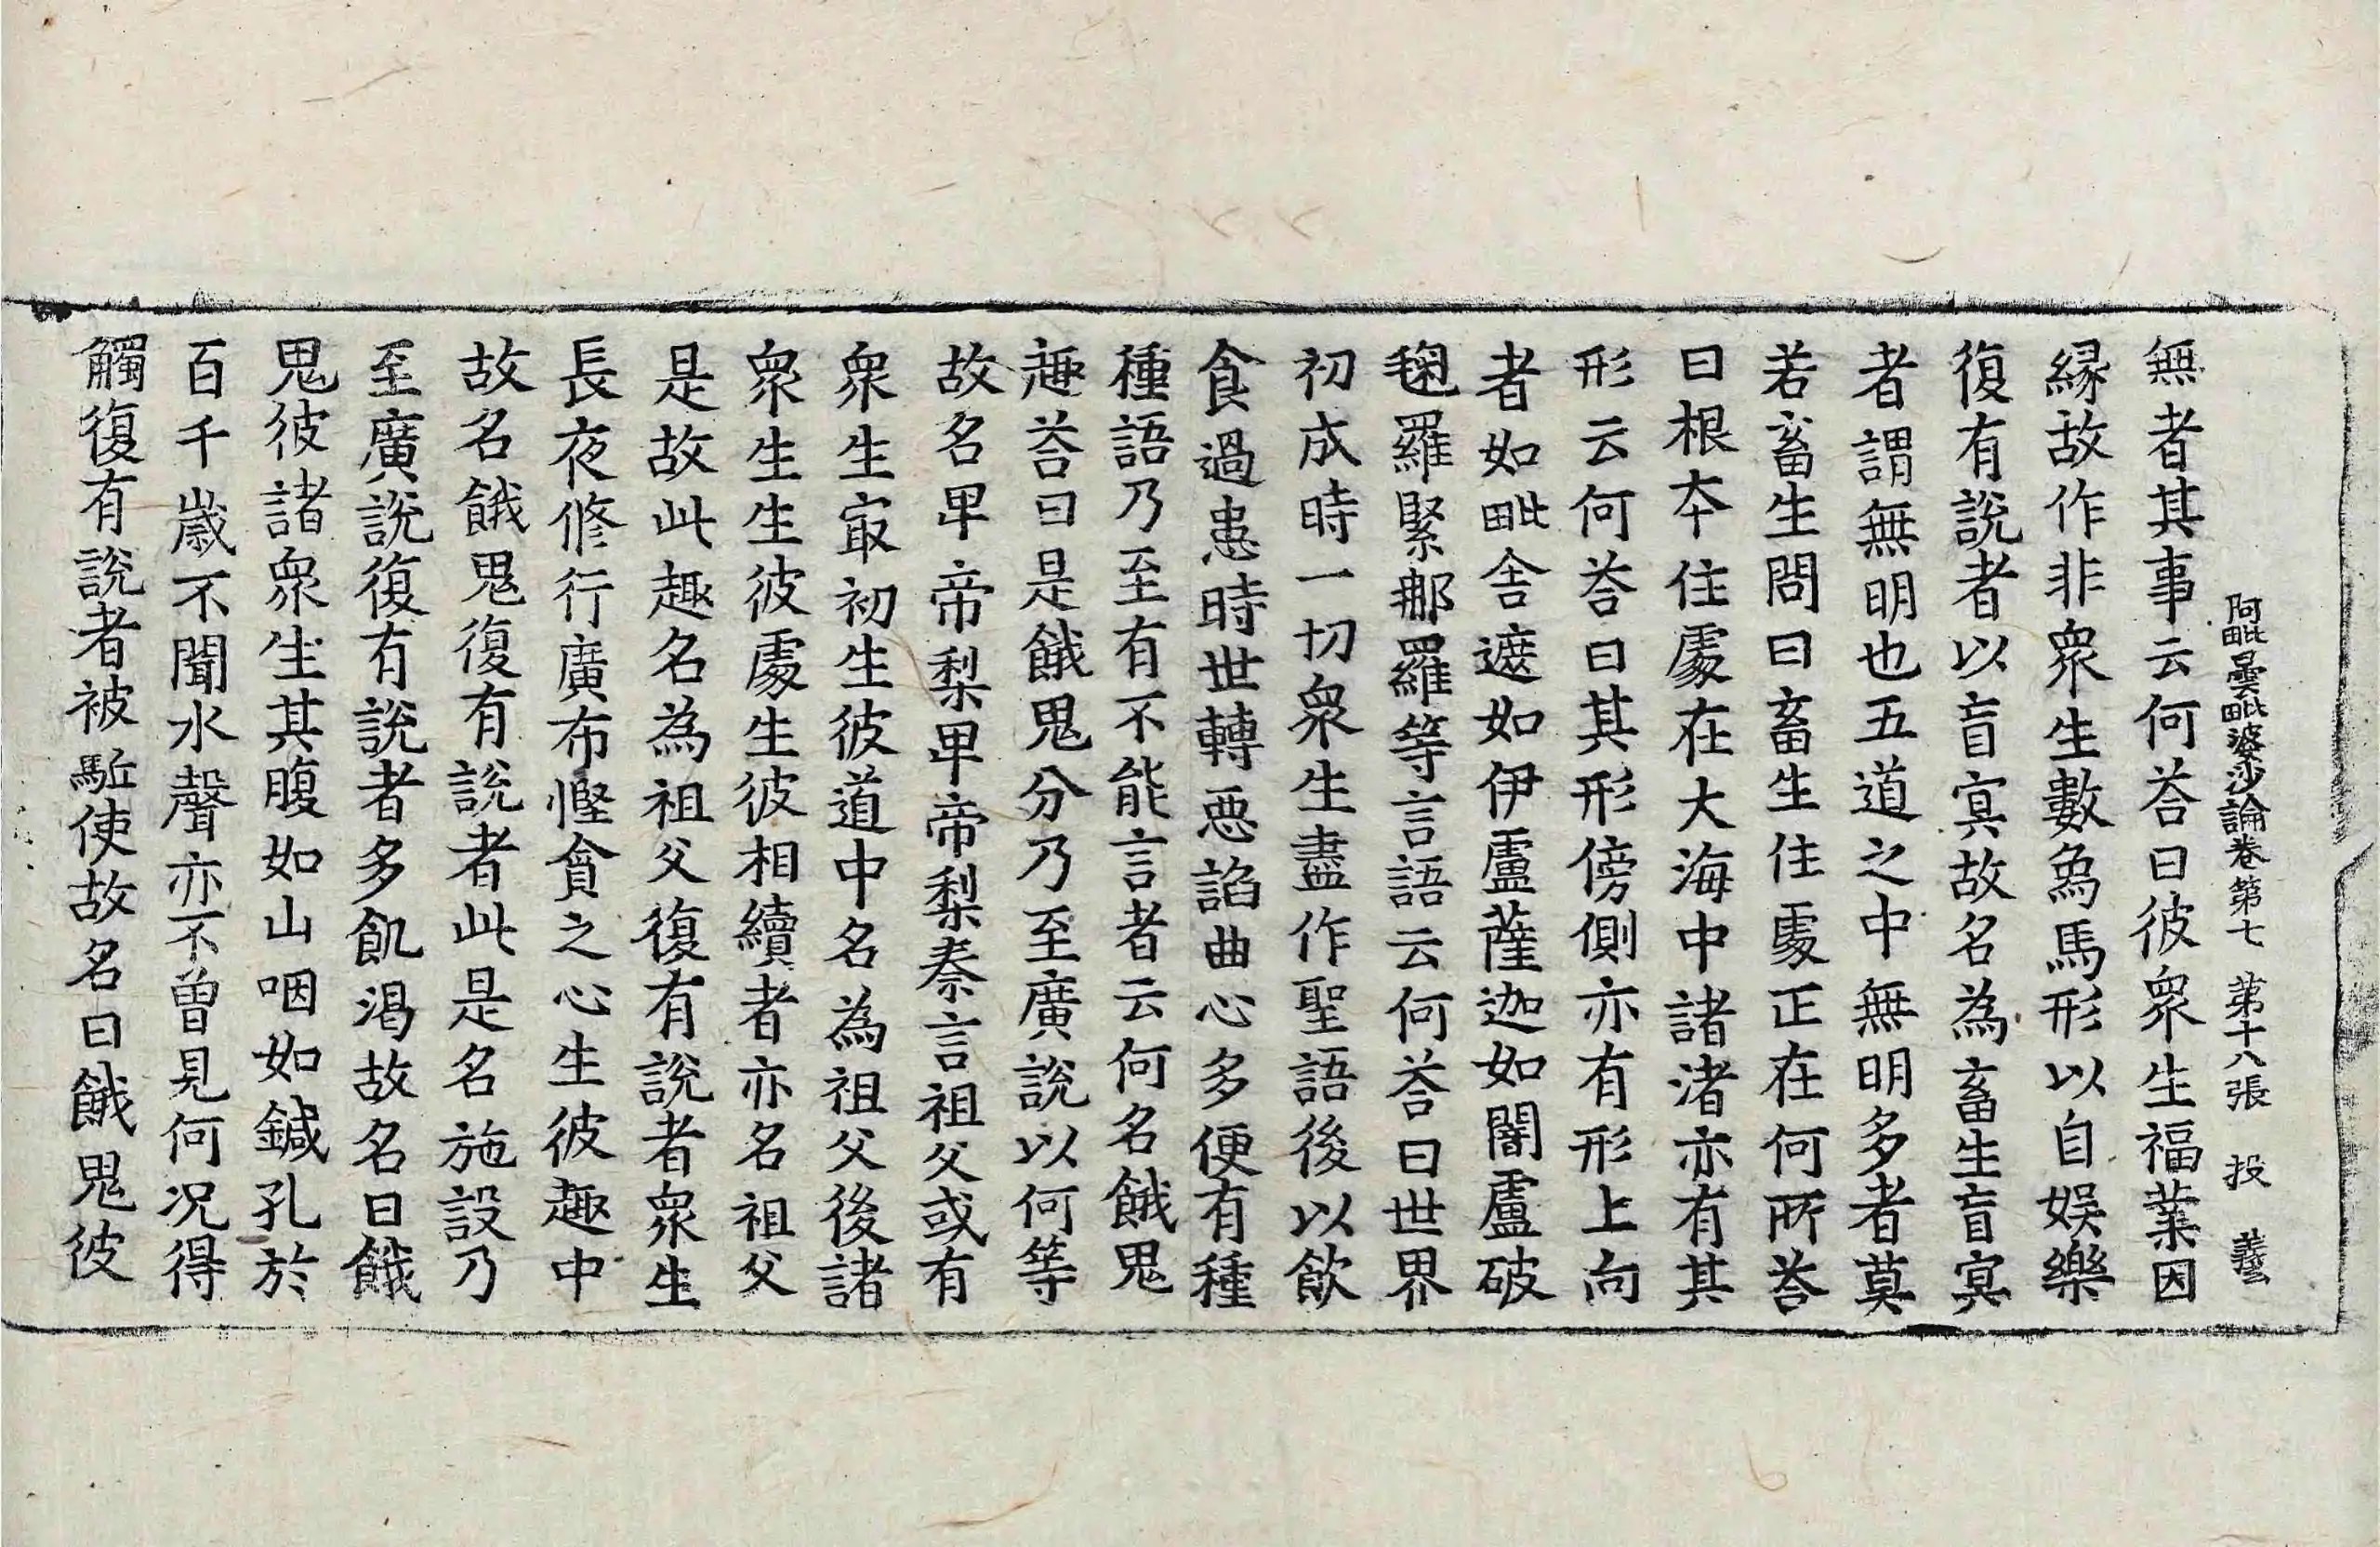 阿毗曇毗婆沙論卷第七 第十八張 投 義
無者其事云何荅曰彼衆生福業因
緣故作非衆生數象馬形以自娛樂
復有說者以盲冥故名為畜生盲冥
者謂無明也五道之中無明多者莫
若畜生問曰畜生住處正在何所荅
曰根本住處在大海中諸渚亦有其
形云何荅曰其形傍側亦有形上向
者如毗舍遮如伊盧薩迦如闍盧破
羅緊那羅等言語云何荅曰世界
初成時一切衆生盡作聖語後以飲
食過患時世轉惡諂曲心多便有種
種語乃至有不能言者云何名餓鬼
趣荅曰是餓鬼分乃至廣說以何等
故名卑帝梨卑帝梨秦言祖父或有
衆生冣初生彼道中名為祖父後諸
衆生生彼處生彼相續者亦名祖父
是故此趣名為祖父復有說者衆生
長夜修行廣布慳貪之心生彼趣中
故名餓鬼復有說者此是名施設乃
至廣說復有說者多飢渴故名曰餓
鬼彼諸衆生其腹如山咽如鍼孔於
百千歲不聞水聲亦不曾見何況得
觸復有說者被駈使故名曰餓鬼彼